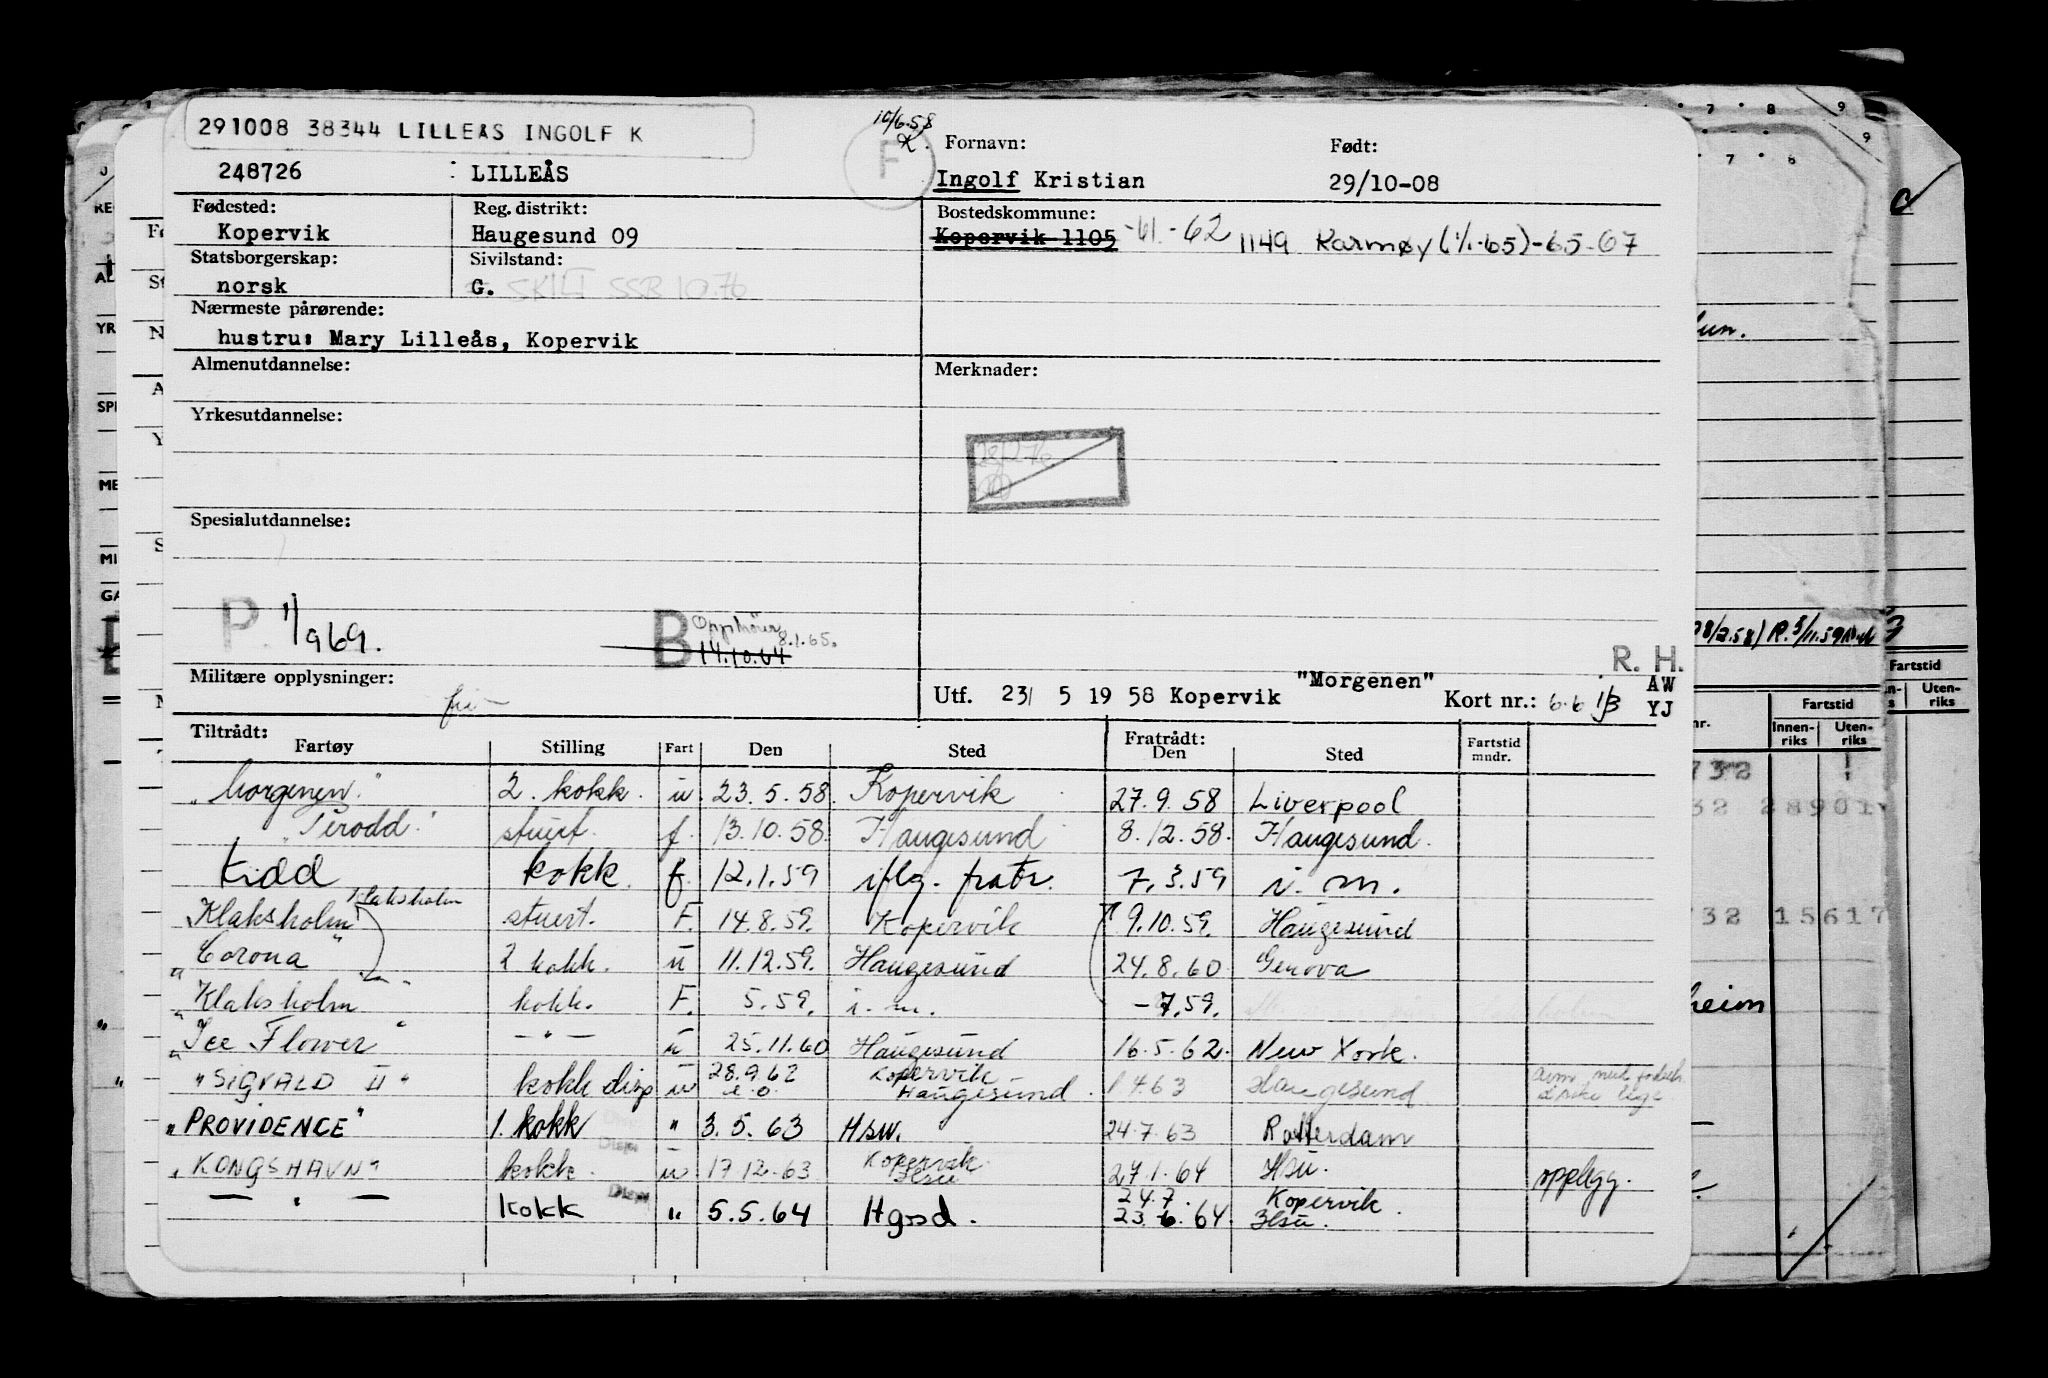 291008 38344 LILLEÅS INGOLF K
10/6.58
K.
F
248726 LILLEÅS
Fornavn: Født:
Ingolf Kristian 29/10-08
Fødested: Reg. distrikt: Bostedskommune:
Kopervik Haugesund 09 Kopervik 1105 -61.-62 1149 Karmøy (1/1-65)-65-67
Statsborgerskap: Sivilstand:
norsk G. SKILT SSB 10.76
Nærmeste pårørende:
hustru: Mary Lilleås, Kopervik
Almenutdannelse: Merknader:
Yrkesutdannelse:
Spesialutdannelse:
P. 1/1 969. B Opphører 8.1.65.
14.10.64
R. H.
Militære opplysninger: Utf. 23/ 5 19 58 Kopervik "Morgenen" Kort nr.: 6.6 AW
YJ
Tiltrådt: Fratrådt:
Fartøy Stilling Fart Den Sted Den Sted Fartstid mndr.
"Morgenen" 2. kokk. u 23.5.58. Kopervik 27.9.58 Liverpool
"Terodd." stuert. f. 13.10.58. Haugesund 8.12.58. Haugesund.
Kidd kokk. f. 12.1.59 iflg. fratr. 7.3.59 i. m.
Klaksholm
Klaksholm stuert. F. 14.8.59. Kopervik 9.10.59. Haugesund
"Corona" 2 kokk. u 11.12.59. Haugesund 24.8.60 Genova
"Klaksholm" kokk. F. 5.59. i. m. -7.59.
"Ice Flower" — " — u 25.11.60 Haugesund 16.5.62. New York.
"SIGVALD II" kokk disp u 28.9.62 Kopervik Haugesund. 1.4.63 Haugesund
"PROVIDENCE" 1. kokk " 3.5.63 Hsu. 24.7.63 Rotterdam
"KONGSHAVN" kokk. Disp u 17.12.63 Kopervik Hsu 27.1.64 Hsu. opplegg.
— " — kokk Disp " 5.5.64 Hgsd. 24.7. Kopervik.
23.6.64 Hsu.